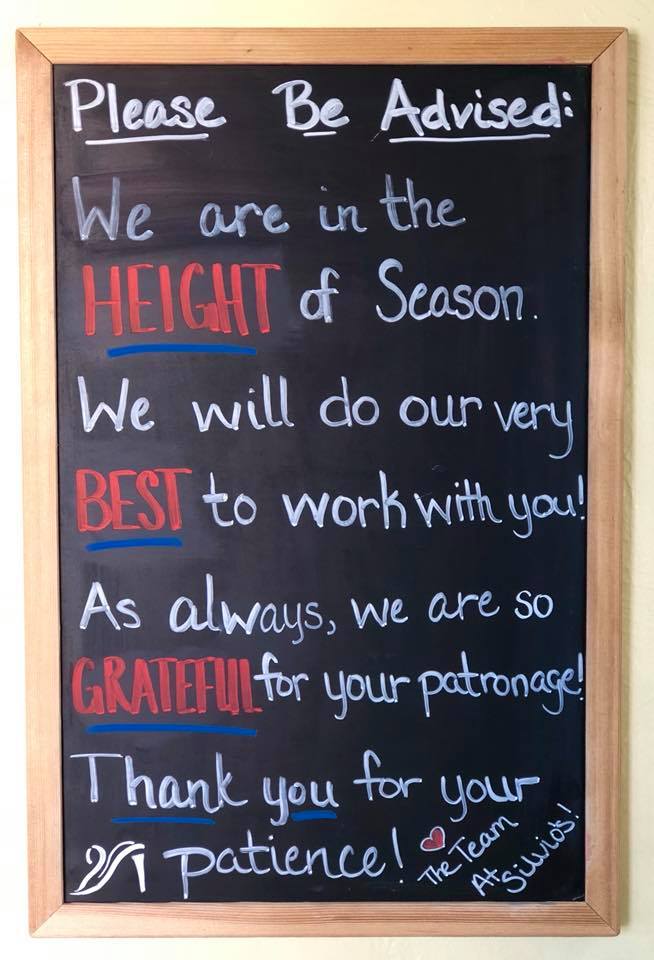 Please Be Advised:
We are in the
HEIGHT of Season.
We will do our very
BEST to work with you!
As always, we are so
GRATEFUL for your patronage!
Thank you for your
patience!
The Team
At Silvio's!